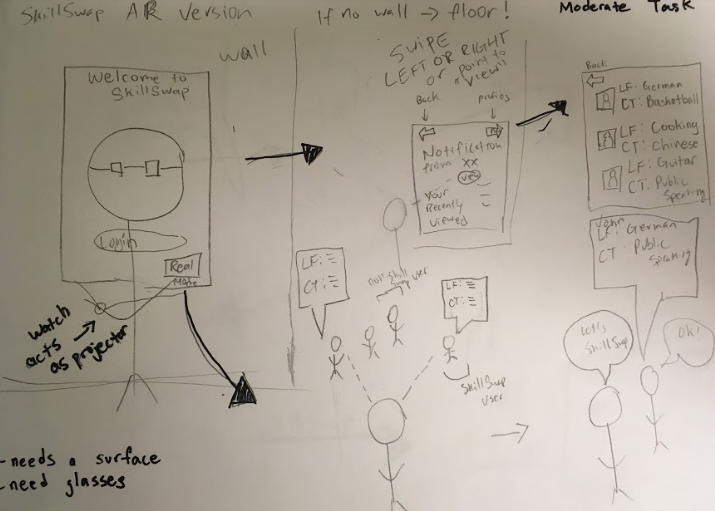 SkillSwap AR Version
wall
Welcome to
SkillSwap
Login
Real
Mode
watch
acts
as projector
- needs a surface
- need glasses
If no wall → floor!
SWIPE
LEFT OR RIGHT
or point to
"view"
Back
profiles
Notification
from xx
view
Your
Recently
viewed
LF:
CT:
not skill
swap user
LF:
CT:
SkillSwap
user
Moderate Task
Back
LF: German
CT: Basketball
LF: Cooking
CT: Chinese
LF: Guitar
CT: Public
Speaking
John
LF: German
CT: Public
Speaking
Let's
SkillSwap
Ok!